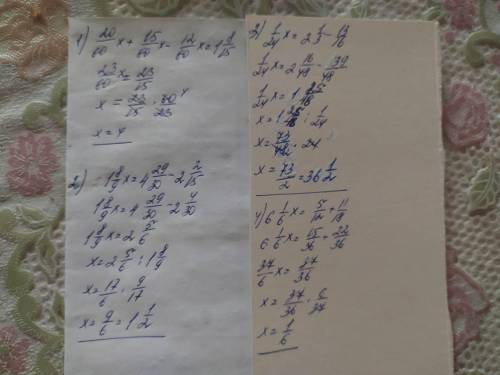 1) 20/60 x + 15/60 x - 12/60 x = 1 8/15
23/60 x = 23/15
x = 23/15 · 60/23 4
x = 4
2) 1 8/9 x = 4 29/30 - 2 2/15
1 8/9 x = 4 29/30 - 2 4/30
1 8/9 x = 2 5/6
x = 2 5/6 : 1 8/9
x = 17/6 · 9/17
x = 9/6 = 1 1/2
3) 1/24 x = 2 1/3 - 13/16
1/24 x = 2 16/48 - 39/48
1/24 x = 1 25/48
x = 1 25/48 : 1/24
x = 73/48 · 24
x = 73/2 = 36 1/2
4) 6 1/6 x = 5/12 + 11/18
6 1/6 x = 15/36 + 22/36
37/6 x = 37/36
x = 37/36 · 6/37
x = 1/6